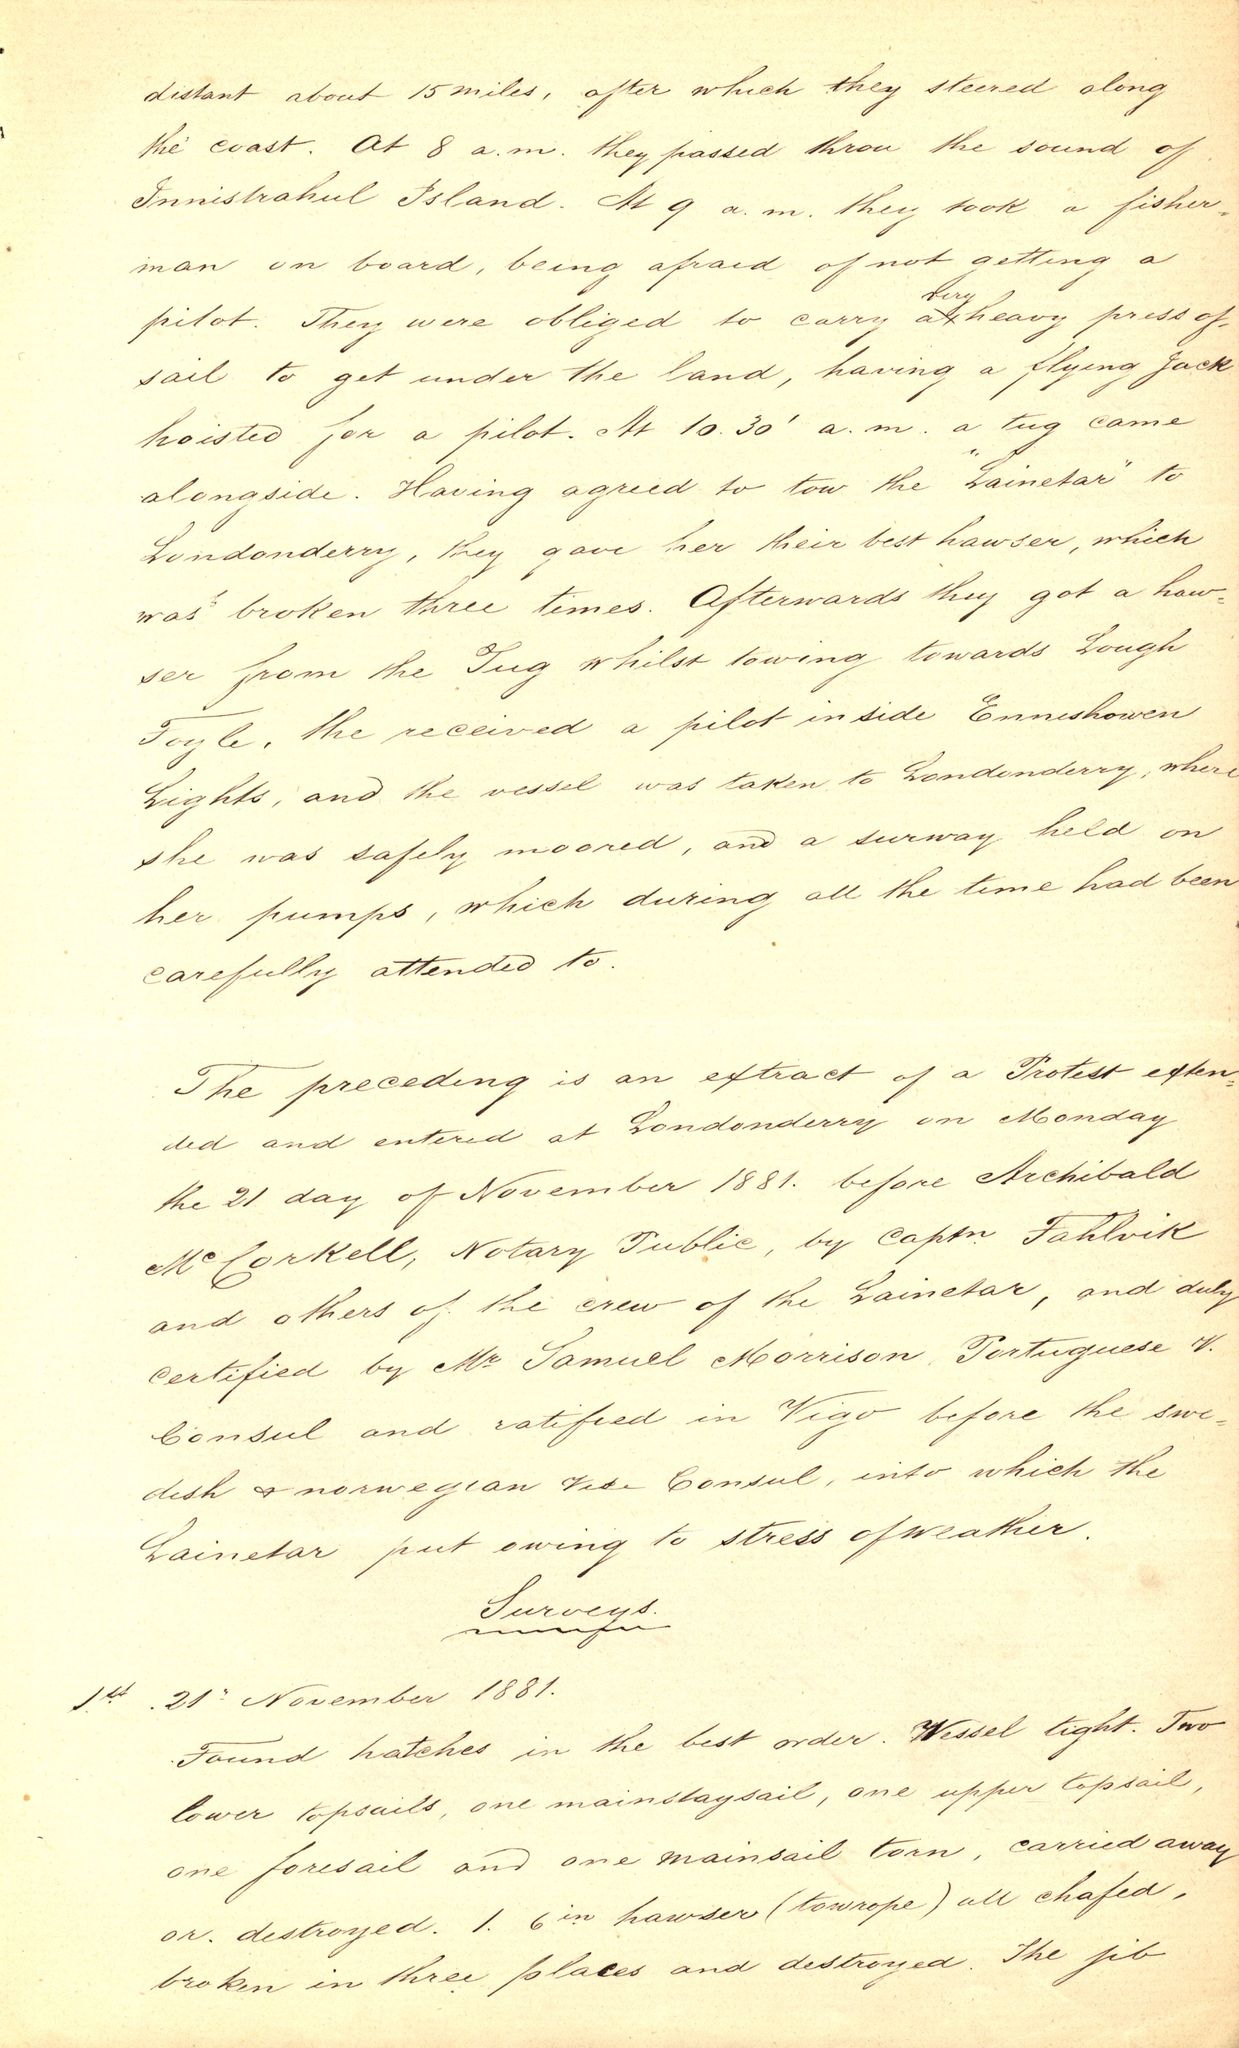 distant about 15 miles, after which they steered along
the coast. At 8 a.m. they passed throu the sound of
Innistrahul Island. At 9 a.m. they took a fisher-
man on board, being afraid of not getting a
pilot. They were obliged to carry a very heavy press of
sail to get under the land, having a flying Jack
hoisted for a pilot. At 10.30' a.m. a tug came
alongside. Having agreed to tow the "Lainetar" to
Londonderry, they gave her their best hawser, which
was broken three times. Afterwards they got a haw-
ser from the Tug whilst towing towards Lough
Foyle, the received a pilot inside Enneshowen
Lights, and the vessel was taken to Londonderry, where
she was safely moored, and a surway held on
her pumps, which during all the time had been
carefully attended to.
The preceding is an extract of a Protest exten-
ded and entered at Londonderry on Monday
the 21 day of November 1881. before Archibald
McCorkell, Notary Public, by Captn. Fahlvik
and others of the crew of the Lainetar, and duly
certified by Mr Samuel Morrison, Portuguese V.
Consul and ratified in Vigo before the swe-
dish & norwegian Vise Consul, into which the
Lainetar put owing to stress of weather.
Surveys.
1st. 21st November 1881.
Found hatches in the best order. Wessel tight. Two
lower topsails, one mainstaysail, one upper topsail,
one foresail and one mainsail torn, carried away
or destroyed. 1. 6 in hawser (towrope) all chafed,
broken in three places and destroyed. The jib